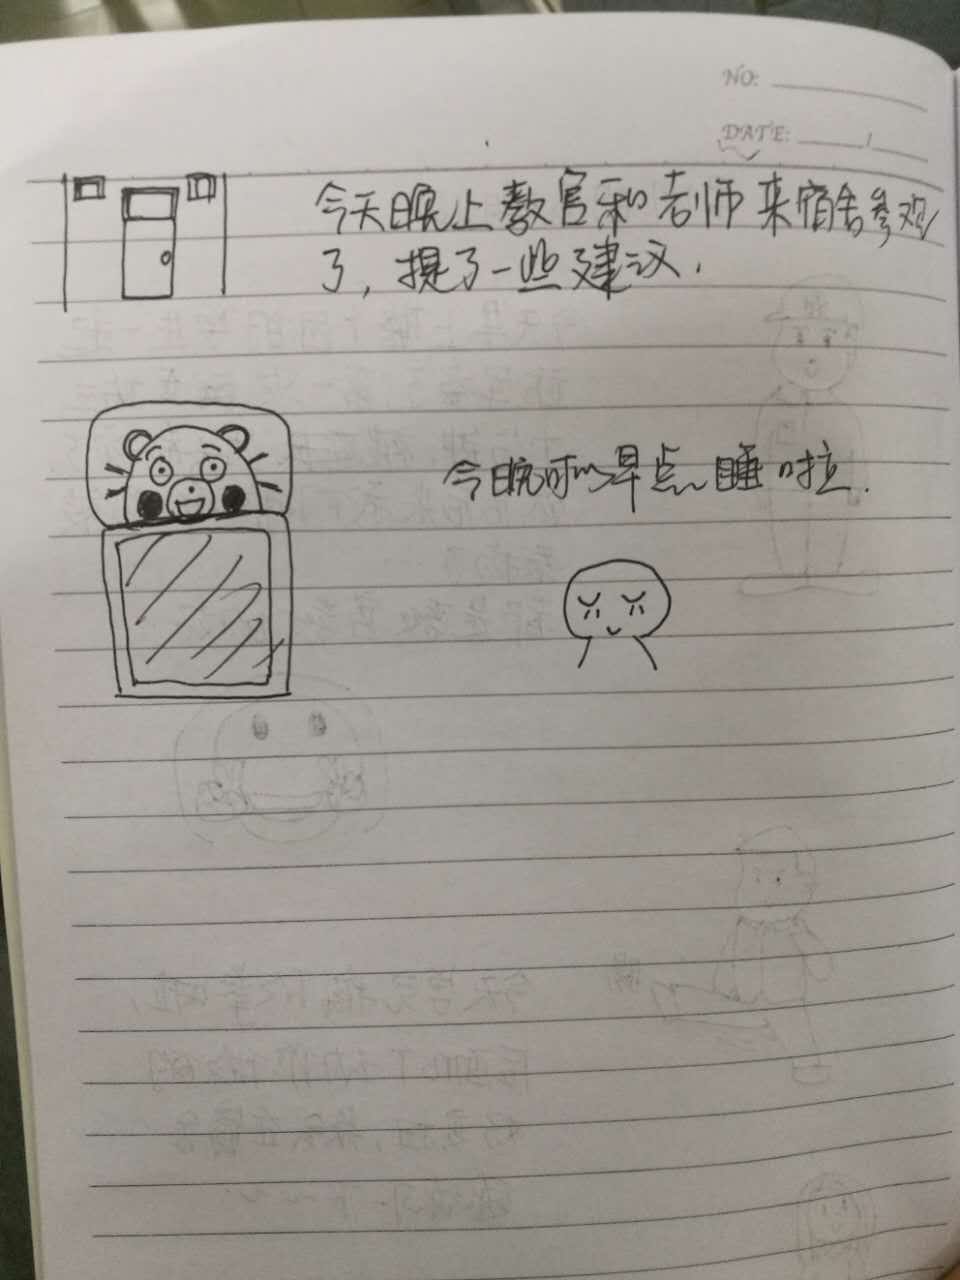 NO:
DATE:
今天晚上教官和老师来宿舍参观
了，提了一些建议.
今晚可以早点睡啦.